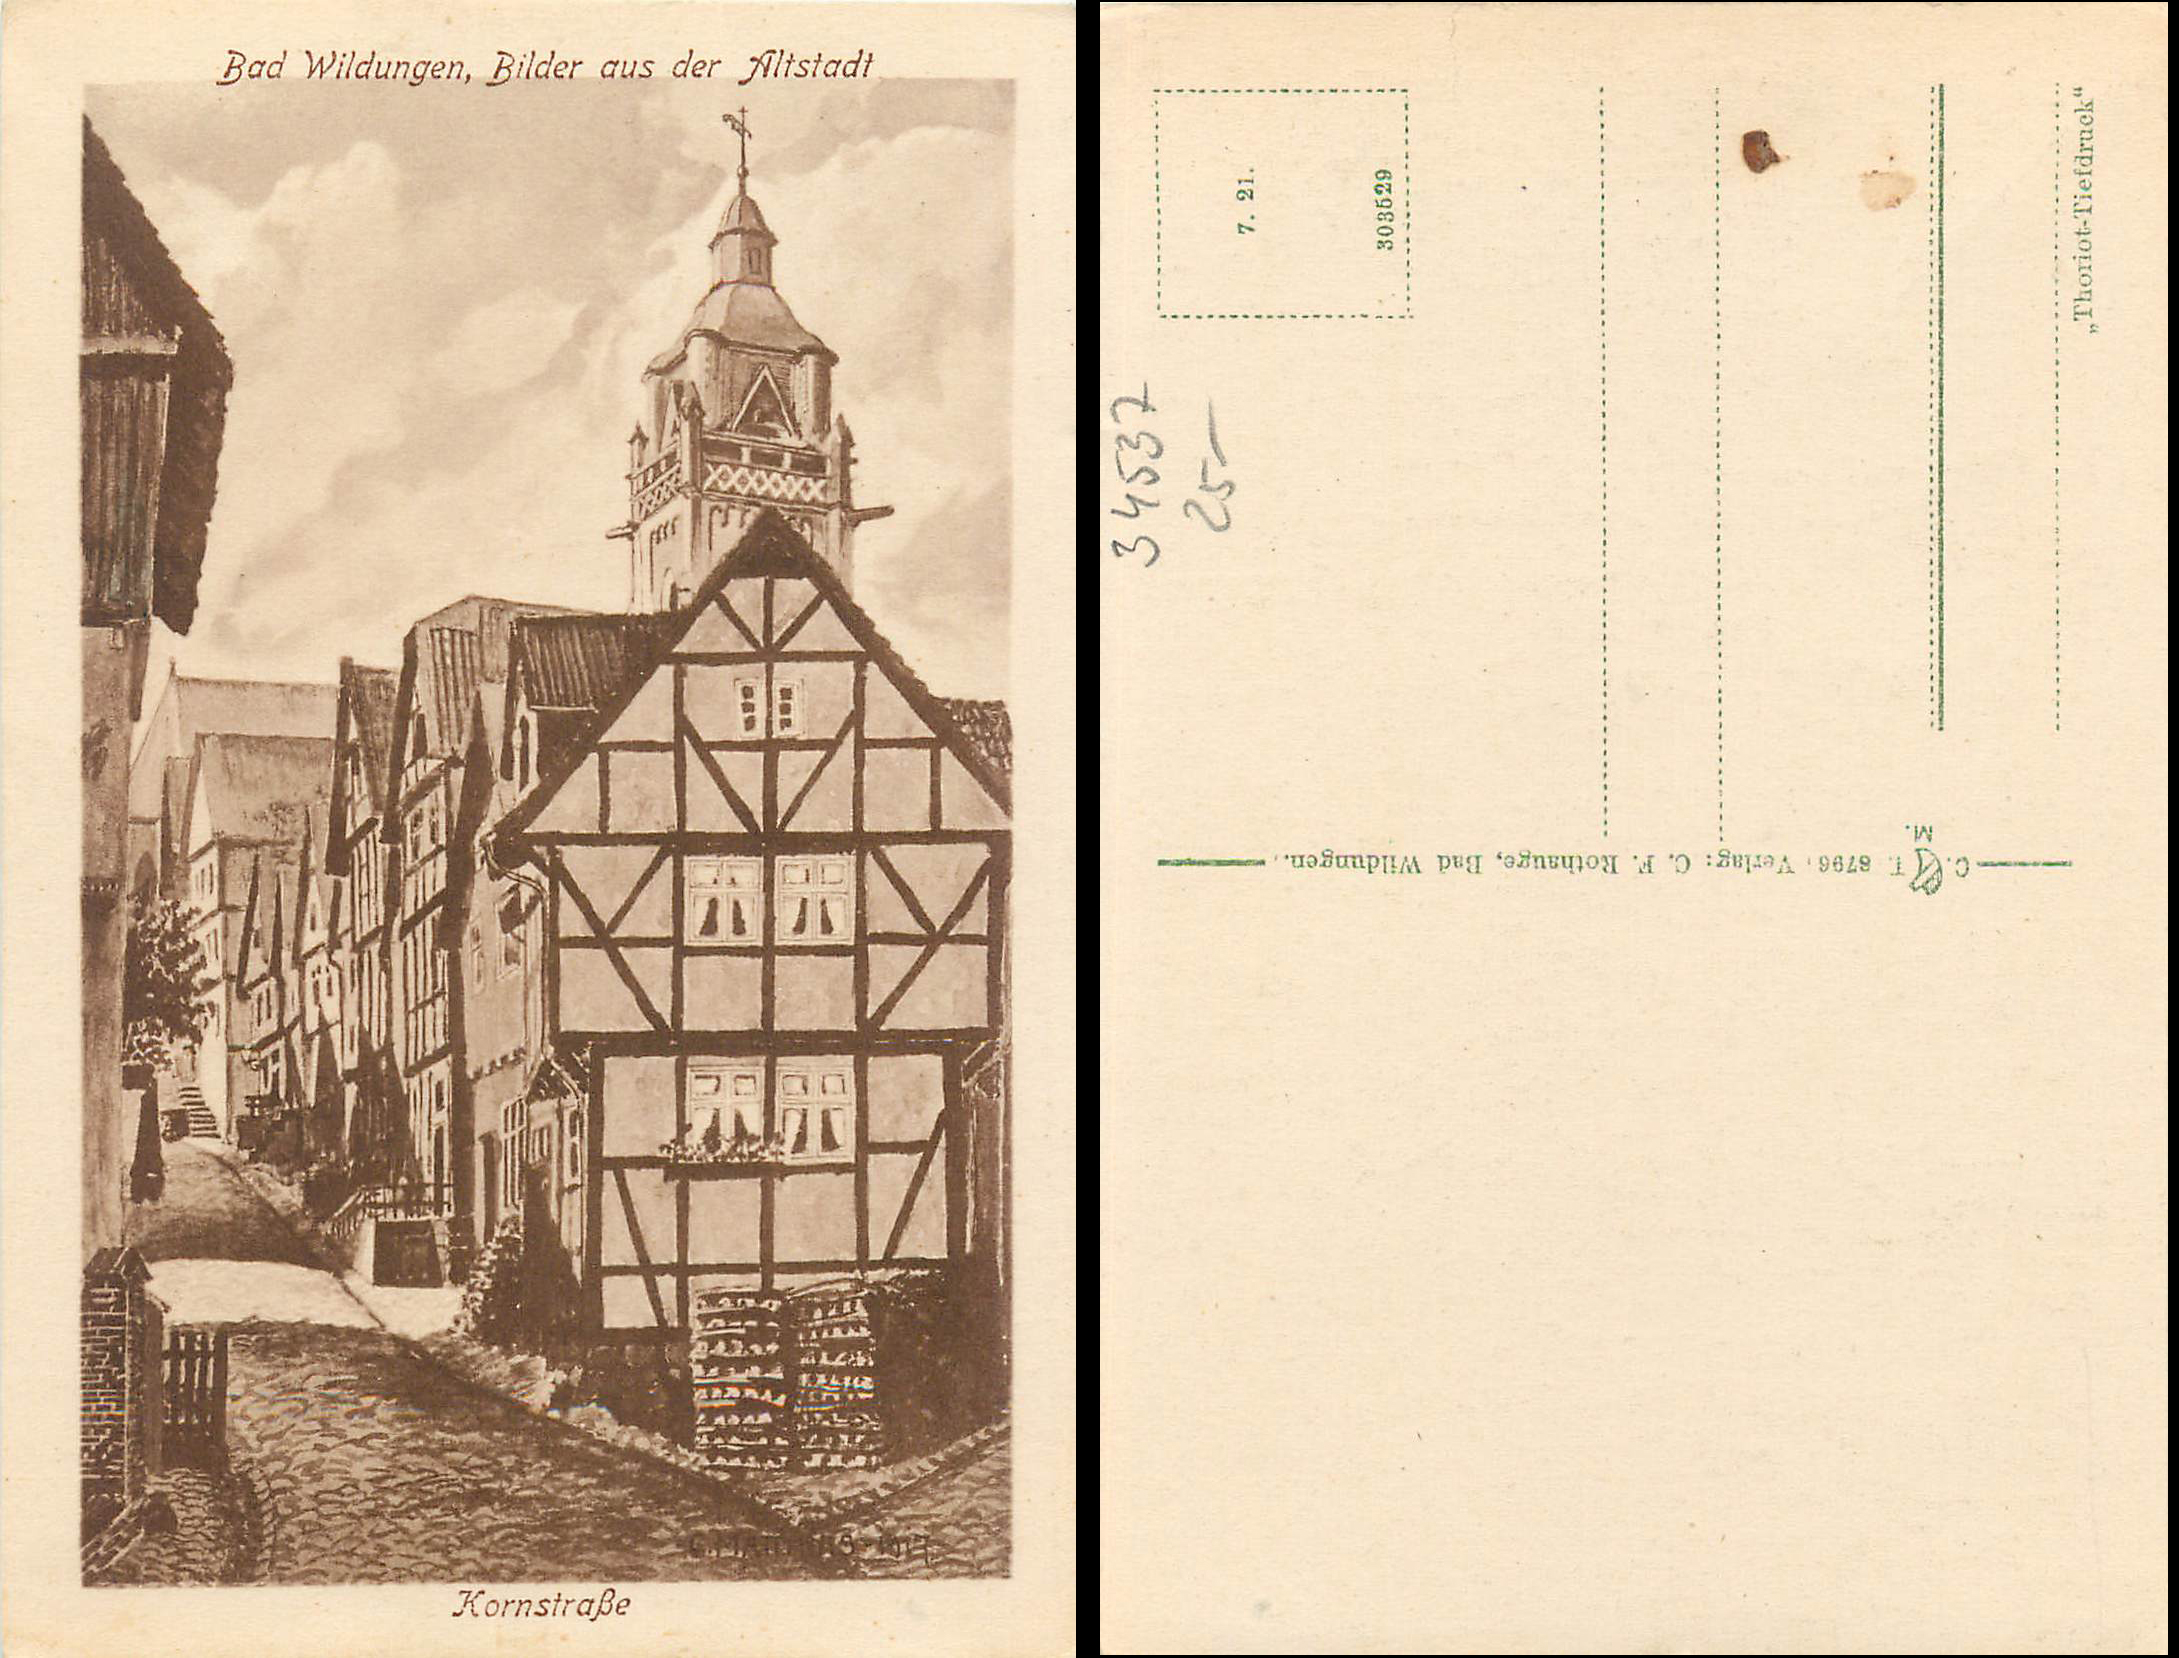 Bad Wildungen, Bilder aus der Altstadt
Kornstraße
7. 21.
303529
34537
25-
„Thoriot-Tiefdruck“
C. T. 8796. Verlag: C. F. Rothauge, Bad Wildungen.
M.